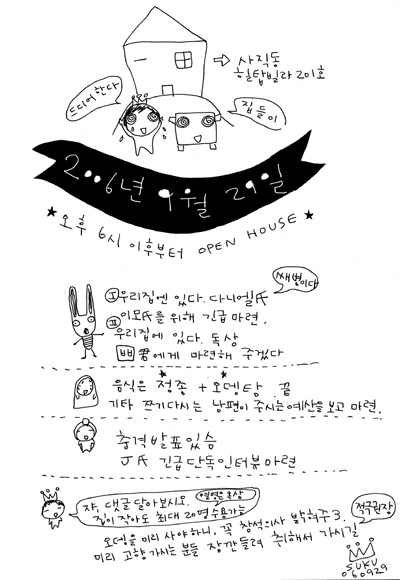 → 사직동
힐탑빌라 201호
드디어한다
집들이
2006년 9월 29일
★ 오후 6시 이후부터 OPEN HOUSE ★
써병이다
Ⅰ 우리집엔 있다. 다니엘氏
Ⅱ 이모氏를 위해 긴급 마련.
우리집에 있다. 독상
삐콩에게 마련해 주겠다
음식은 정종 + 오뎅탕. 끝
기타 쯘기다시는 남편이 주시는 예산을 보고 마련.
충격발표있슴
J氏 긴급단독인터뷰마련
쟈, 댓글 달아보시오.
집이 작아도 최대 20명 수용가능
적극권장
오뎅을 미리 사야하니, 꼭 참석의사 밝혀주3.
미리 고향 가시는 분들 잠깐 들려 취해서 가시길
SUKU
60929